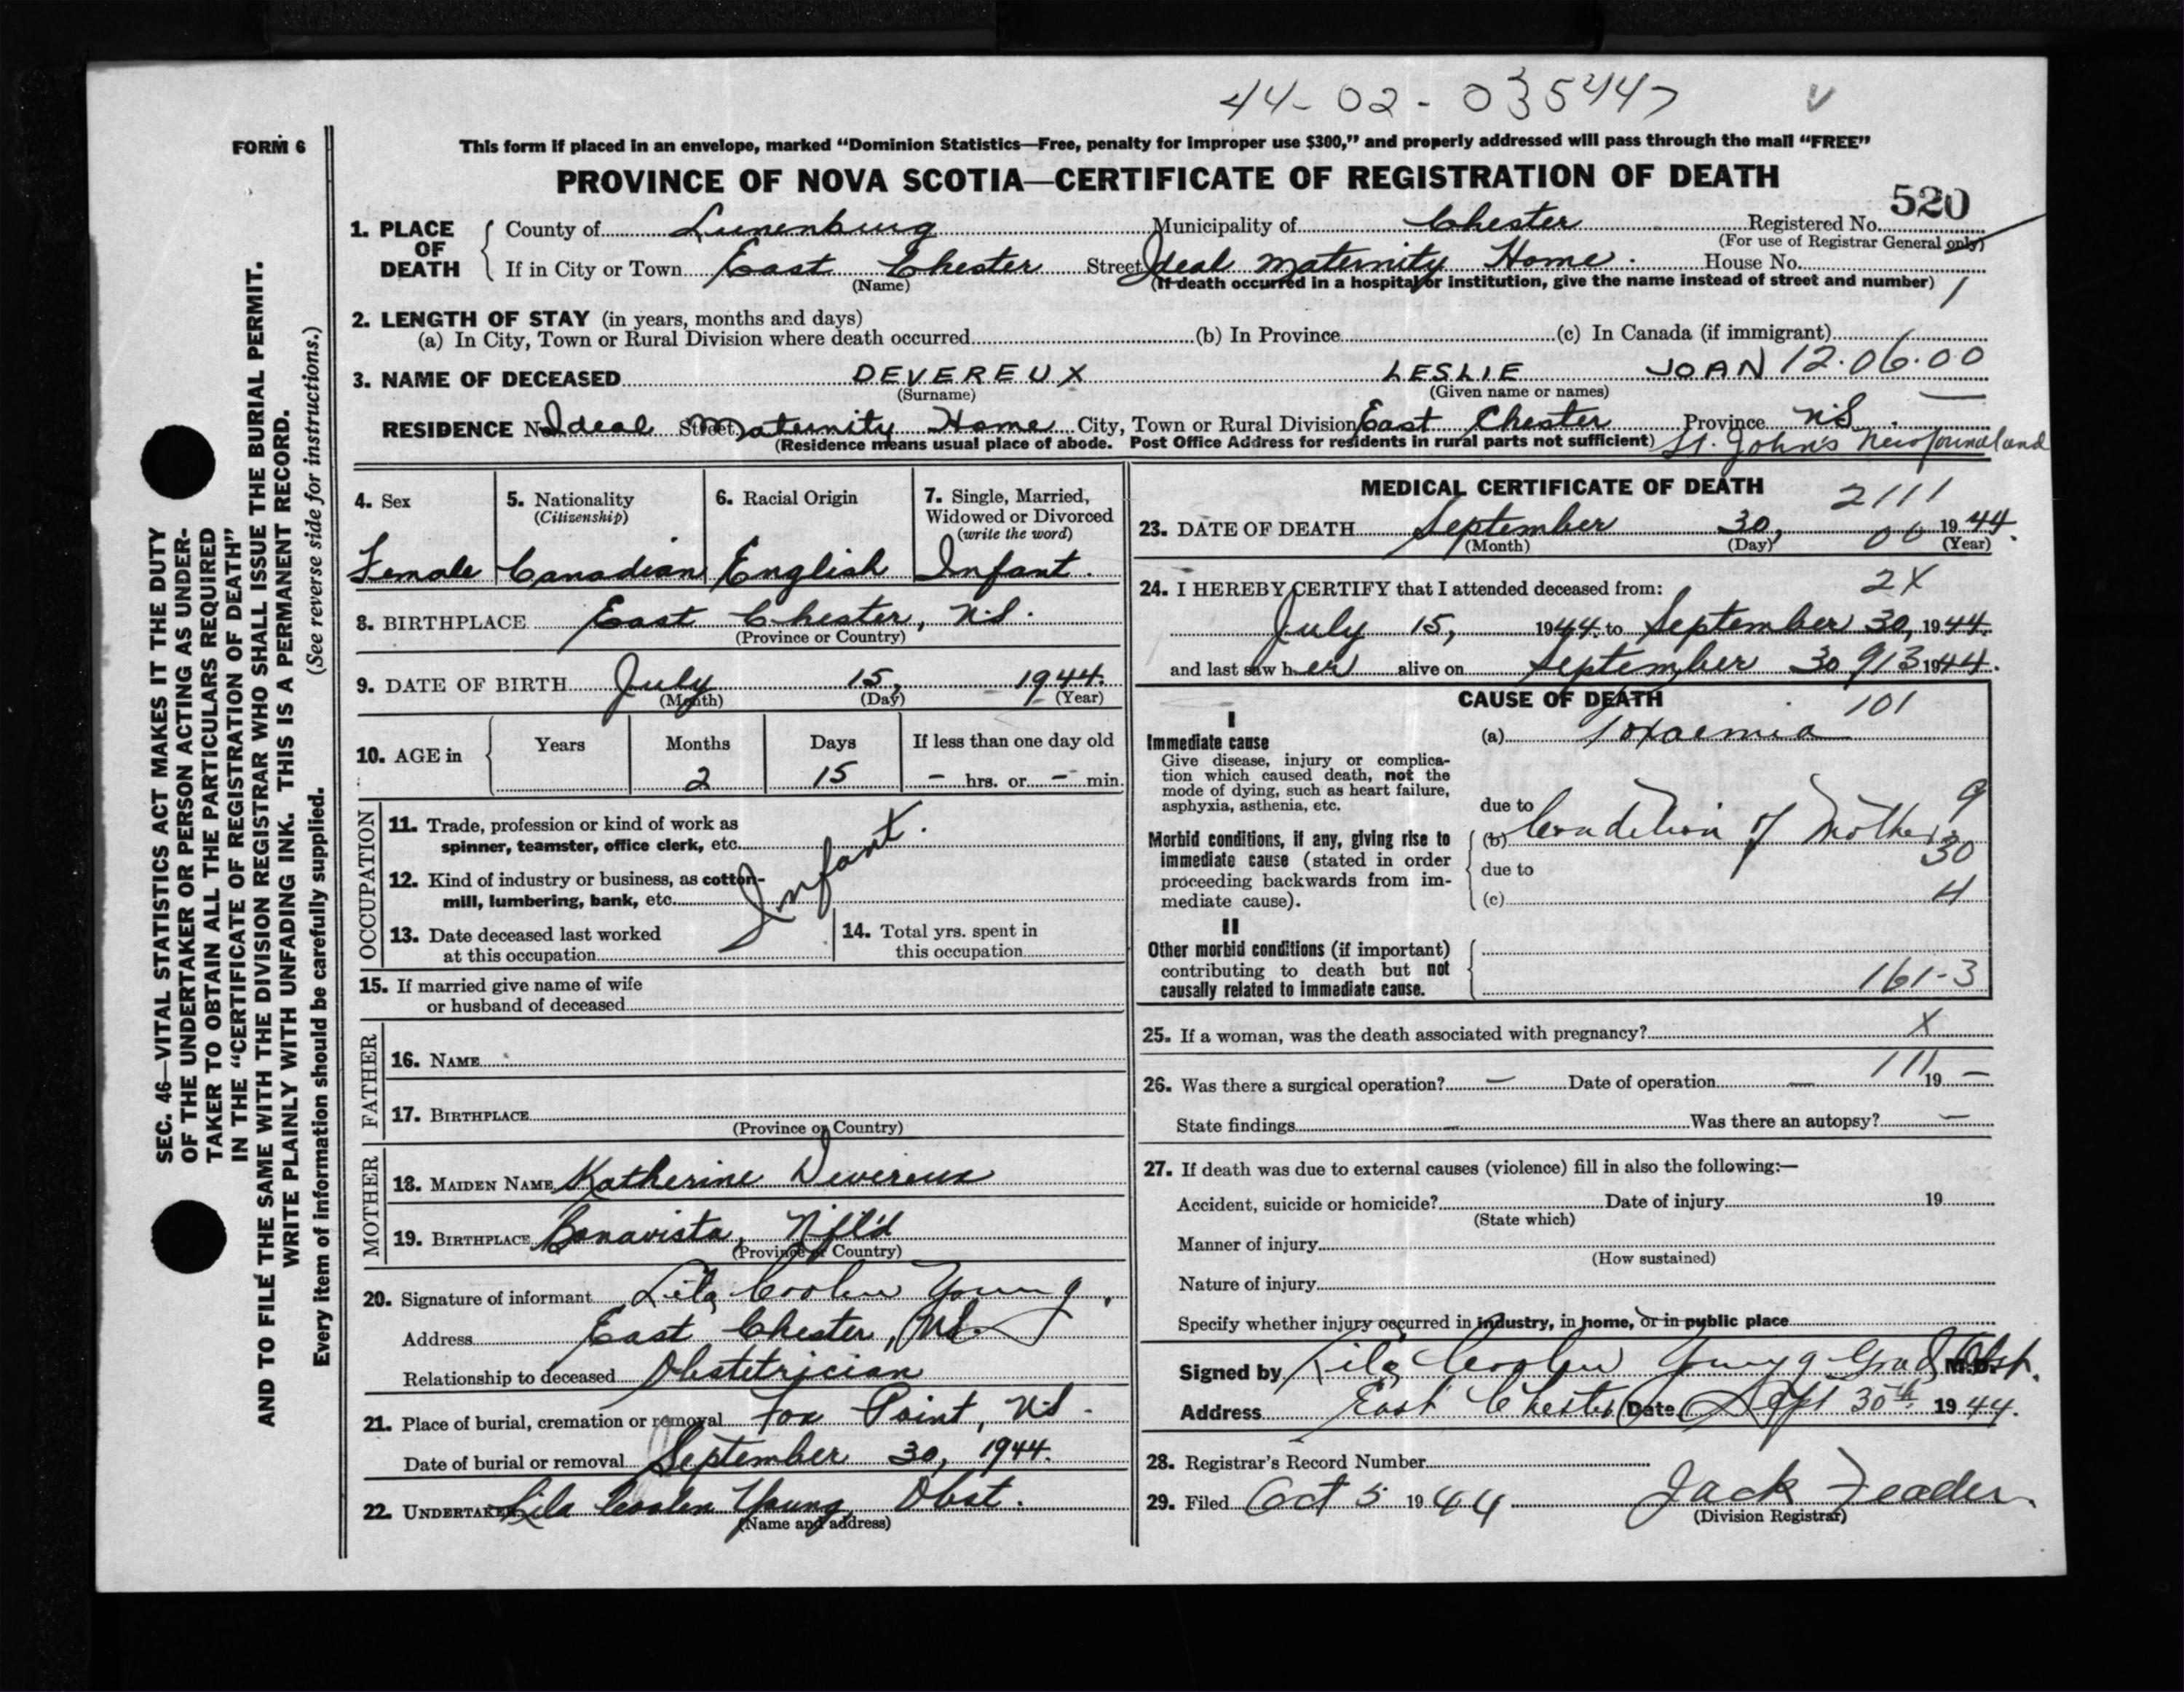 44-02-035447 v
FORM 6
This form if placed in an envelope, marked "Dominion Statistics—Free, penalty for improper use $300," and properly addressed will pass through the mail "FREE"
PROVINCE OF NOVA SCOTIA—CERTIFICATE OF REGISTRATION OF DEATH
520
1. PLACE OF DEATH
County of Lunenburg Municipality of Chester Registered No.
(For use of Registrar General only)
If in City or Town East Chester Street Ideal Maternity Home. House No.
(Name) (If death occurred in a hospital or institution, give the name instead of street and number) 1
2. LENGTH OF STAY (in years, months and days)
(a) In City, Town or Rural Division where death occurred (b) In Province (c) In Canada (if immigrant)
3. NAME OF DECEASED DEVEREUX LESLIE JOAN 12.06.00
(Surname) (Given name or names)
RESIDENCE Ideal Street Maternity Home City, Town or Rural Division East Chester Province N.S.
(Residence means usual place of abode. Post Office Address for residents in rural parts not sufficient) St. John's Newfoundland
4. Sex
Female
5. Nationality
(Citizenship)
Canadian
6. Racial Origin
English
7. Single, Married,
Widowed or Divorced
(write the word)
Infant.
8. BIRTHPLACE East Chester, N.S.
(Province or Country)
9. DATE OF BIRTH July 15, 1944.
(Month) (Day) (Year)
10. AGE in
Years Months Days If less than one day old
2 15 – hrs. or – min.
OCCUPATION
11. Trade, profession or kind of work as
spinner, teamster, office clerk, etc.
12. Kind of industry or business, as cotton-
mill, lumbering, bank, etc.
Infant.
13. Date deceased last worked
at this occupation
14. Total yrs. spent in
this occupation
15. If married give name of wife
or husband of deceased
FATHER
16. NAME
17. BIRTHPLACE
(Province or Country)
MOTHER
18. MAIDEN NAME Katherine Devereux
19. BIRTHPLACE Bonavista, Nfl'd
(Province or Country)
20. Signature of informant Lila Coolen Young.
Address East Chester, N.S.
Relationship to deceased Obstetrician
21. Place of burial, cremation or removal Fox Point, N.S.
Date of burial or removal September 30, 1944.
22. UNDERTAKER Lila Coolen Young, Obst.
(Name and address)
MEDICAL CERTIFICATE OF DEATH
2111
23. DATE OF DEATH September 30, 1944.
(Month) (Day) 00 (Year)
24. I HEREBY CERTIFY that I attended deceased from: 2X
July 15, 1944. to September 30, 1944.
and last saw her alive on September 30 913 1944.
CAUSE OF DEATH
101
I
Immediate cause
Give disease, injury or complica-
tion which caused death, not the
mode of dying, such as heart failure,
asphyxia, asthenia, etc.
(a) Toxaemia
due to 9
Morbid conditions, if any, giving rise to
immediate cause (stated in order
proceeding backwards from im-
mediate cause).
(b) Condition of Mother
30
due to
(c) 4
II
Other morbid conditions (if important)
contributing to death but not
causally related to immediate cause.
161-3
25. If a woman, was the death associated with pregnancy? X
26. Was there a surgical operation? – Date of operation – 111 19 –
State findings – Was there an autopsy? –
27. If death was due to external causes (violence) fill in also the following:—
Accident, suicide or homicide? Date of injury 19
(State which)
Manner of injury
(How sustained)
Nature of injury
Specify whether injury occurred in industry, in home, or in public place
Signed by Lila Coolen Young Grad. M.D. Obst.
Address East Chester Date Sept 30th. 1944.
28. Registrar's Record Number
29. Filed Oct 5 1944 Jack Zeader.
(Division Registrar)
SEC. 46—VITAL STATISTICS ACT MAKES IT THE DUTY
OF THE UNDERTAKER OR PERSON ACTING AS UNDER-
TAKER TO OBTAIN ALL THE PARTICULARS REQUIRED
IN THE "CERTIFICATE OF REGISTRATION OF DEATH"
AND TO FILE THE SAME WITH THE DIVISION REGISTRAR WHO SHALL ISSUE THE BURIAL PERMIT.
WRITE PLAINLY WITH UNFADING INK. THIS IS A PERMANENT RECORD.
Every item of information should be carefully supplied. (See reverse side for instructions.)